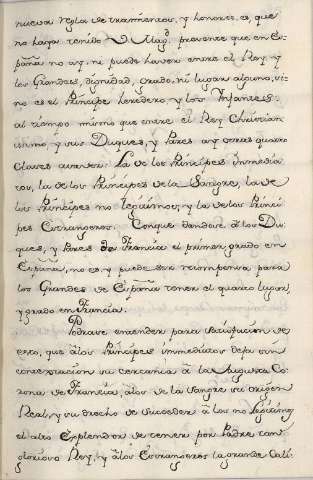 nuevas reglas de tratamientos, y honores, a que
no haya tenido V. Mag.d presente que en Es-
paña no ay ni puede haver entre el Rey, y
los Grandes, dignidad, grado, ni lugar alguno, si-
no es el Principe heredero, y los Infantes:
al tiempo mismo que entre el Rey Christian
issimo, y sus Duques, y Pares ay otras quatro
clases aurores: La de los Principes inmedia
tos, la de los Principes de la Sangre, la de
los Principes no legitimos, y la de los Princi
pes Estrangeros. Conque dandose á los Du
ques, y Pares de Francia el primer grado en
España, no es, y puede ser recompensa para
los Grandes de España tener el quarto lugar,
y grado en Francia.
Podrase entender para satisfacion de
esto, que á los Principes inmediatos deja sin
contextacion su cercania á la Augusta Co
rona de Francia, á los de la Sangre su origen
Real, y su drecho de succeder á los no legitimos
el alto esplendor de tener por Padre tan
glorioso Rey, y á los Estrangeros la grande Cali